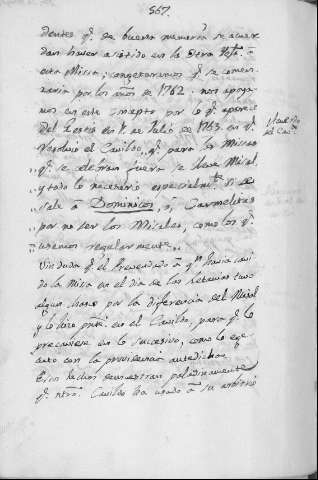 567.
dentes q.e de buena memoria se acuer
dan haver asistido en la otra
esta Missa; congeturamos q.e se comen
zaria por los años de 1762. nos apoya
mos en este concepto por lo q.e aparece
del Acuerdo 1.° de Julio de 1763. en q.e
resolvió el Cavildo, q.e para las Missas
q.e se celebran fuera se lleve Misal,
y todo lo necesario especialm.te si se
„ sale a Dominicos, ó Carmelitas
„ por no ser los Misales, como los q.e
„ usamos regularmente.
Sin duda q.e el Prevendado à q.n havia cavi
do la Misa en el dia de las Letanias tuvo
algun chasco por la diferencia del Misal
y lo hizo pres.te en el Cavildo, para q.e lo
precaviese en lo sucesivo, como lo eje
cuto con la providencia antedicha.
Estos hechos demuestran paladinamente
q.e ntro. Cavildo ha usado à su arbitrio
Acuerdo
del Cav.do